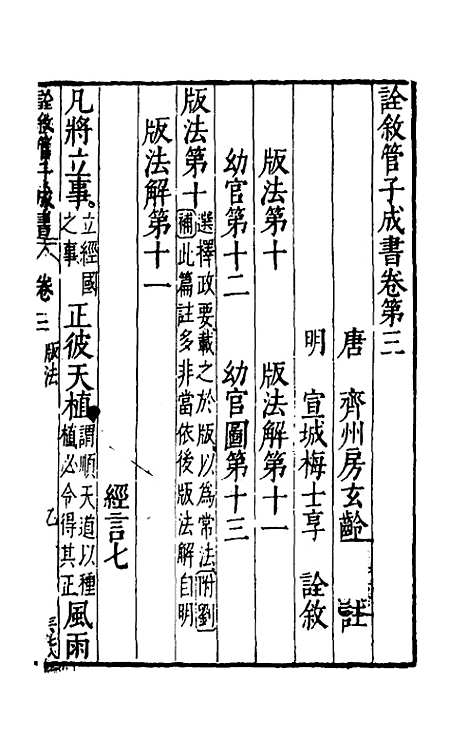 詮敘管子成書卷第三
唐 齊州房玄齡 註
明 宣城梅士享 詮敘
版法第十 版法解第十一
幼官第十二 幼官圖第十三
版法第十 選擇政要載之於版以為常法附劉
補此篇註多非當依後版法解自明
版法解第十一
經言七
凡將立事。立經國之事正彼天植謂順天道以種植必令得其正風雨
詮敘管子成書 卷三 版法